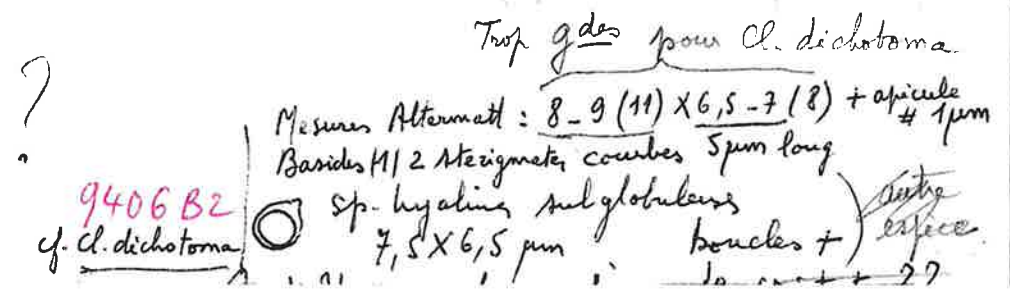 Trop gdes pour Cl. dichotoma
?
Mesures Altermatt : 8-9 (11) X 6,5-7 (8) + apicule # 1µm
Basides 2 sterigmates courbes 5µm long
9406 B2
cf. Cl. dichotoma
sp. hyalines subglobuleuses
7,5 X 6,5 µm boucles +
autre espèce